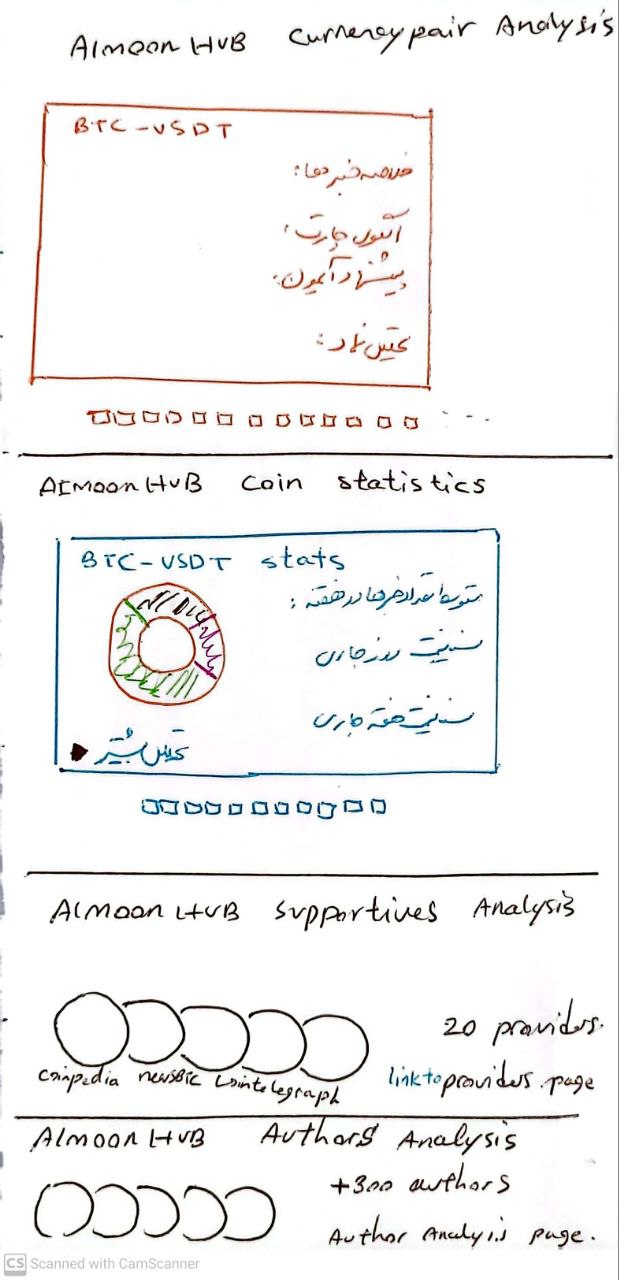 AIMOON HUB Currencypair Analysis
BTC-USDT
خلاصه خبرها:
آنالیز چارت:
پیشنهاد آیمون:
تحلیل نماد:
AIMOON HUB Coin statistics
BTC-USDT stats
متوسط تعداد خبرها در هفته:
سنتیمنت روز جاری
سنتیمنت هفته جاری
تحلیل بیشتر
AIMOON HUB Supportives Analysis
20 providers.
coinpedia newsBTC Cointelegraph
link to providers page
AIMOON HUB Authors Analysis
+300 authors
Author Analysis page.
CS Scanned with CamScanner